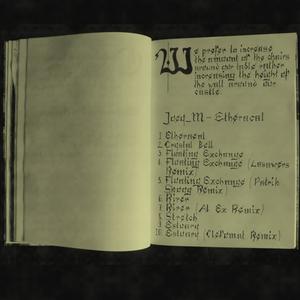 We prefer to increase
the amount of the chairs
around our table rather
increasing the height of
the wall around our
castle.
Joey_M - Ethernent
1. Ethernent
2. Crystal Bell
3. Floating Exchange
4. Floating Exchange (
Remix)
5. Floating Exchange (Patrik
Skoog Remix)
6. River
7. River (Al Ex Remix)
8. Stretch
9. Estuary
10. Estuary ( Remix)